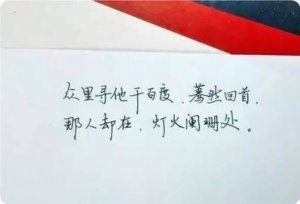 众里寻他千百度，蓦然回首，
那人却在，灯火阑珊处。